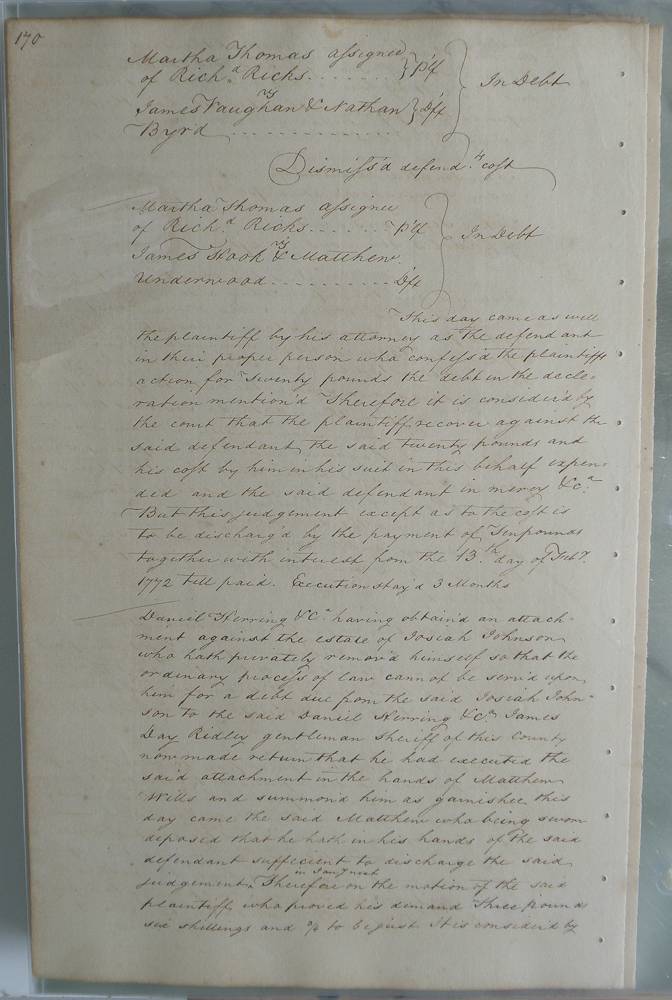 170
Martha Thomas assignee
of Rich.d Ricks . . . . . . . P'lf
In Debt
James Vaughan & Nathan Dft
Byrd . . . . . . . . . . . .
Dismiss'd defend.ts cost
Martha Thomas assignee
of Rich.d Ricks . . . . . . P'lf
In Debt
James Hook & Matthew
Underwood . . . . . . . . . . Dft
This day came as well
the plaintiff by his attorney as the defendant
in their proper person who confess'd the plaintiffs
action for Twenty pounds the debt in the decle-
ration mention'd Therefore it is consider'd by
the court that the plaintiff recover against the
said defendant the said twenty pounds and
his cost by him in his suit in this behalf expen-
ded and the said defendant in mercy &c.a
But this judgement except as to the cost is
to be discharg'd by the payment of Tenpounds
together with interest from the 13.th day of Feb.y
1772 till paid. Execution stay'd 3 Months
Daniel Herring & C.o having obtain'd an attach-
ment against the estate of Josiah Johnson
who hath privately remov'd himself so that the
ordinary process of law cannot be serv'd upon
him for a debt due from the said Josiah John-
son to the said Daniel Herring & C.o James
Day Ridley gentleman Sheriff of this County
now made return that he had executed the
said attachment in the hands of Matthew
Wills and summon'd him as garnishee this
day came the said Matthew who being sworn
deposed that he hath in his hands of the said
defendant sufficient to discharge the said
judgement in Jan.y next Therefore on the motion of the said
plaintiff who proved his demand Three pounds
six shillings and to be just It is consider'd by